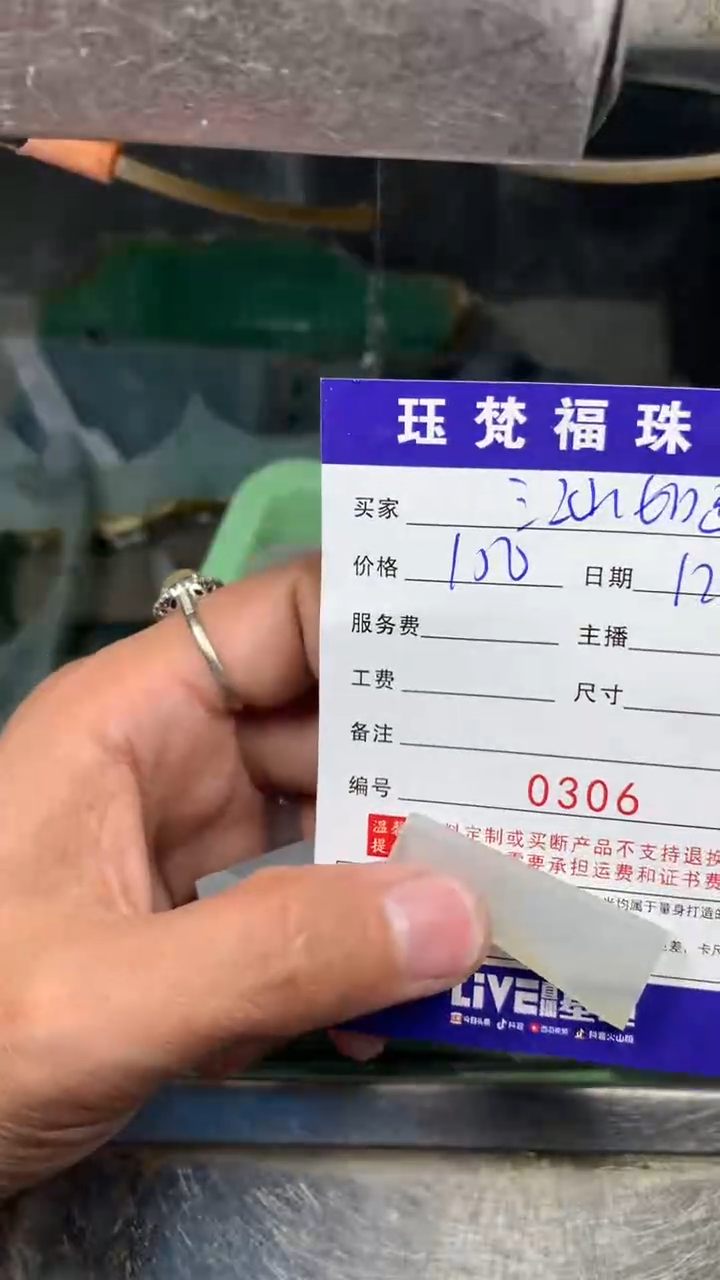 珏梵福珠
买家
价格 100 日期 12
服务费 主播
工费 尺寸
备注
编号 0306
温
提
定制或买断产品不支持退换
需要承担运费和证书费
均属于量身打造的
差、卡尺
LIVE
今日头条 抖音 西瓜视频 抖音火山版